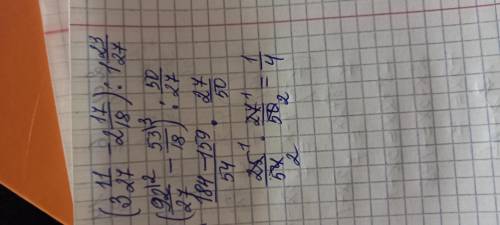 (3 11/27 - 2 17/18) : 1 23/27
(92/27 ² - 53/18 ³) : 50/27
184-159/54 · 27/50
25¹/54₂ · 27¹/50₂ = 1/4